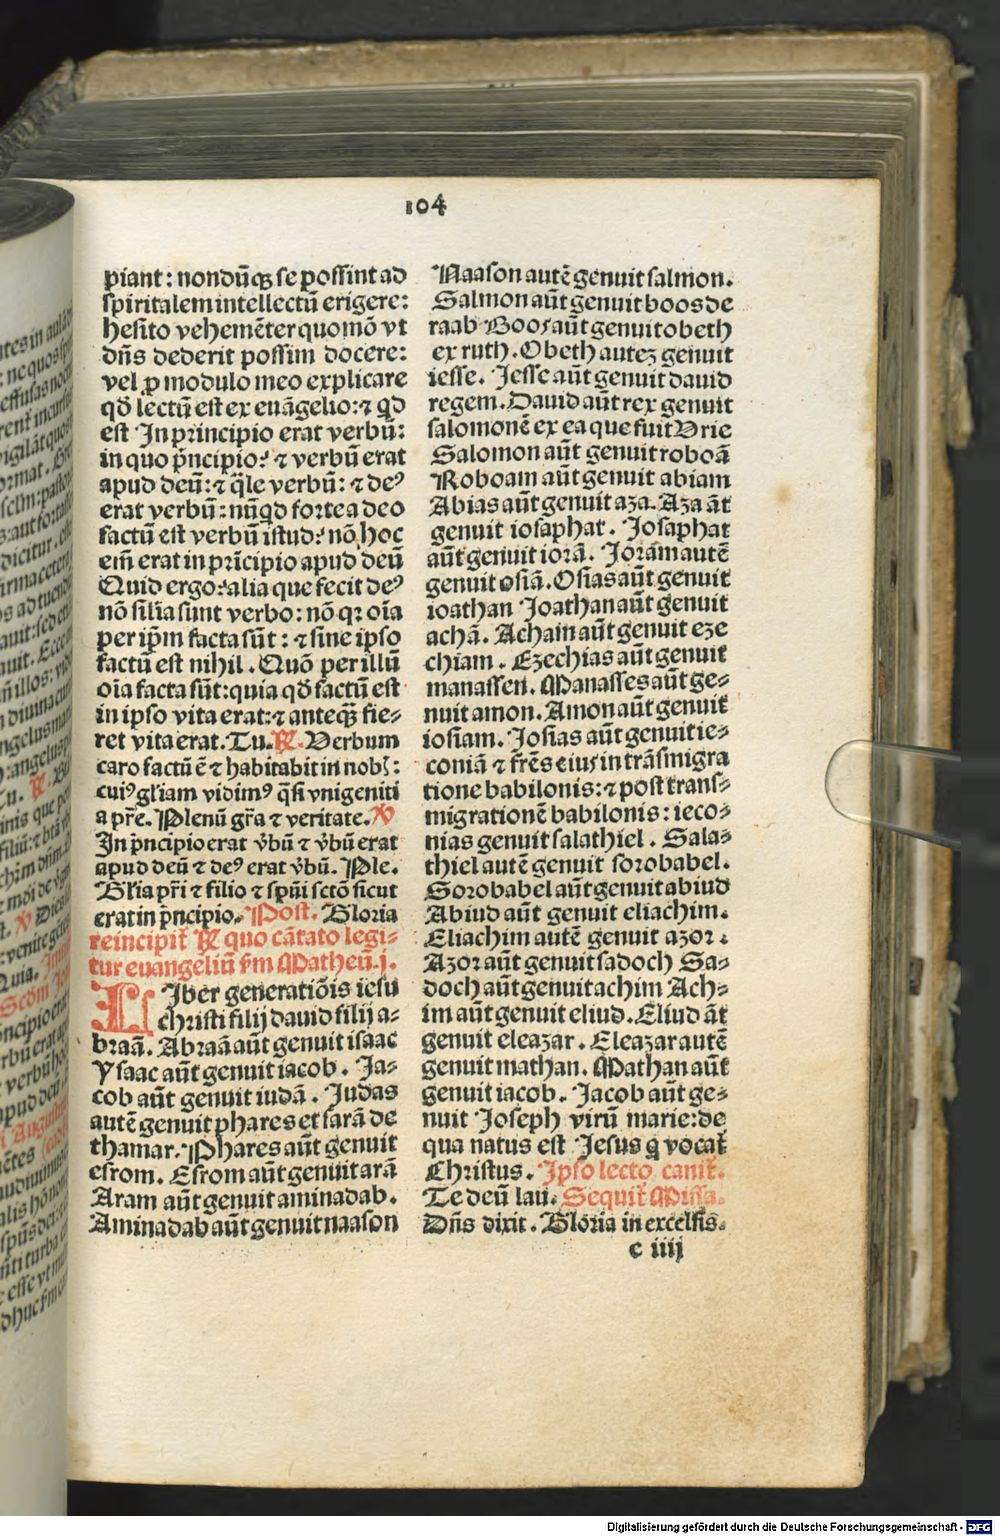 104
piant: nondū qꝫ se possint ad
spiritalem intellectū erigere:
hesito vehemēter quomō vt
dn̄s dederit possim docere:
vel ꝓ modulo meo explicare
qd̄ lectū est ex euāgelio: ⁊ qd
est In principio erat verbū:
in quo pͥncipio? ⁊ verbū erat
apud deū: ⁊ q̄le verbū: ⁊ deꝰ
erat verbū: nūqd fortea deo
factū est verbū istud? nō hoc
eīm erat in principio apud deū
Quid ergo? alia que fecit deꝰ
nō silīa sunt verbo: nō qꝛ oīa
per ipm̄ facta sūt: ⁊ sine ipso
factū est nihil. Quō per illū
oīa facta sūt: quia qd̄ factū est
in ipso vita erat: ⁊ anteqꝫ̄ fie⸗
ret vita erat. Tu. ℟. Verbum
caro factū ē ⁊ habitabit in nobꝭ:
cuiꝰ gl̄iam vidimꝰ q̄si vnigeniti
a pr̄e. Plenū gr̄a ⁊ veritate. ℣
In pͥncipio erat v̄bū ⁊ v̄bū erat
apud deū ⁊ deꝰ erat v̄bū. Ple.
Gl̄ia pr̄i ⁊ filio ⁊ spūi sctō sicut
erat in pͥncipio. Post. Gloria
reincipit̄ ℟ quo cātato legi⸗
tur euangeliū ẜm Matheū. j.
LIber generatiōis iesu
christi filij dauid filij a⸗
braā. Abraā aūt genuit isaac
Ysaac aūt genuit iacob. Ja⸗
cob aūt genuit iudā. Judas
autē genuit phares et sarā de
thamar. Phares aūt genuit
esrom. Esrom aūt genuit arā
Aram aūt genuit aminadab.
Aminadab aūt genuit naason
Naason autē genuit salmon.
Salmon aūt genuit boos de
raab Boos aūt genuit obeth
ex ruth. Obeth auteꝫ genuit
iesse. Jesse aūt genuit dauid
regem. Dauid aūt rex genuit
salomonē ex ea que fuit Vrie
Salomon aūt genuit roboā
Roboam aūt genuit abiam
Abias aūt genuit aza. Aza āt
genuit iosaphat. Josaphat
aūt genuit iorā. Joram autē
genuit osiā. Osias aūt genuit
ioathan Joathan aūt genuit
achā. Acham aūt genuit eze
chiam. Ezechias aūt genuit
manassen. Manasses aūt ge⸗
nuit amon. Amon aūt genuit
iosiam. Josias aūt genuit ie⸗
coniā ⁊ fr̄es eius in trāsmigra
tione babilonis: ⁊ post trans⸗
migrationē babilonis: ieco⸗
nias genuit salathiel. Sala⸗
thiel autē genuit sorobabel.
Sorobabel aūt genuit abiud
Abiud aūt genuit eliachim.
Eliachim autē genuit azor.
Azor aūt genuit sadoch Sa⸗
doch aūt genuit achim Ach⸗
im aūt genuit eliud. Eliud āt
genuit eleazar. Eleazar autē
genuit mathan. Mathan aūt
genuit iacob. Jacob aūt ge⸗
nuit Joseph virū marie: de
qua natus est Jesus q̄ vocat̄
Christus. Ipso lecto canit̄.
Te deū lau. Sequit̄ Missa.
Dn̄s dixit. Gloria in excelsis.
c iiij
Digitalisierung gefördert durch die Deutsche Forschungsgemeinschaft - DFG